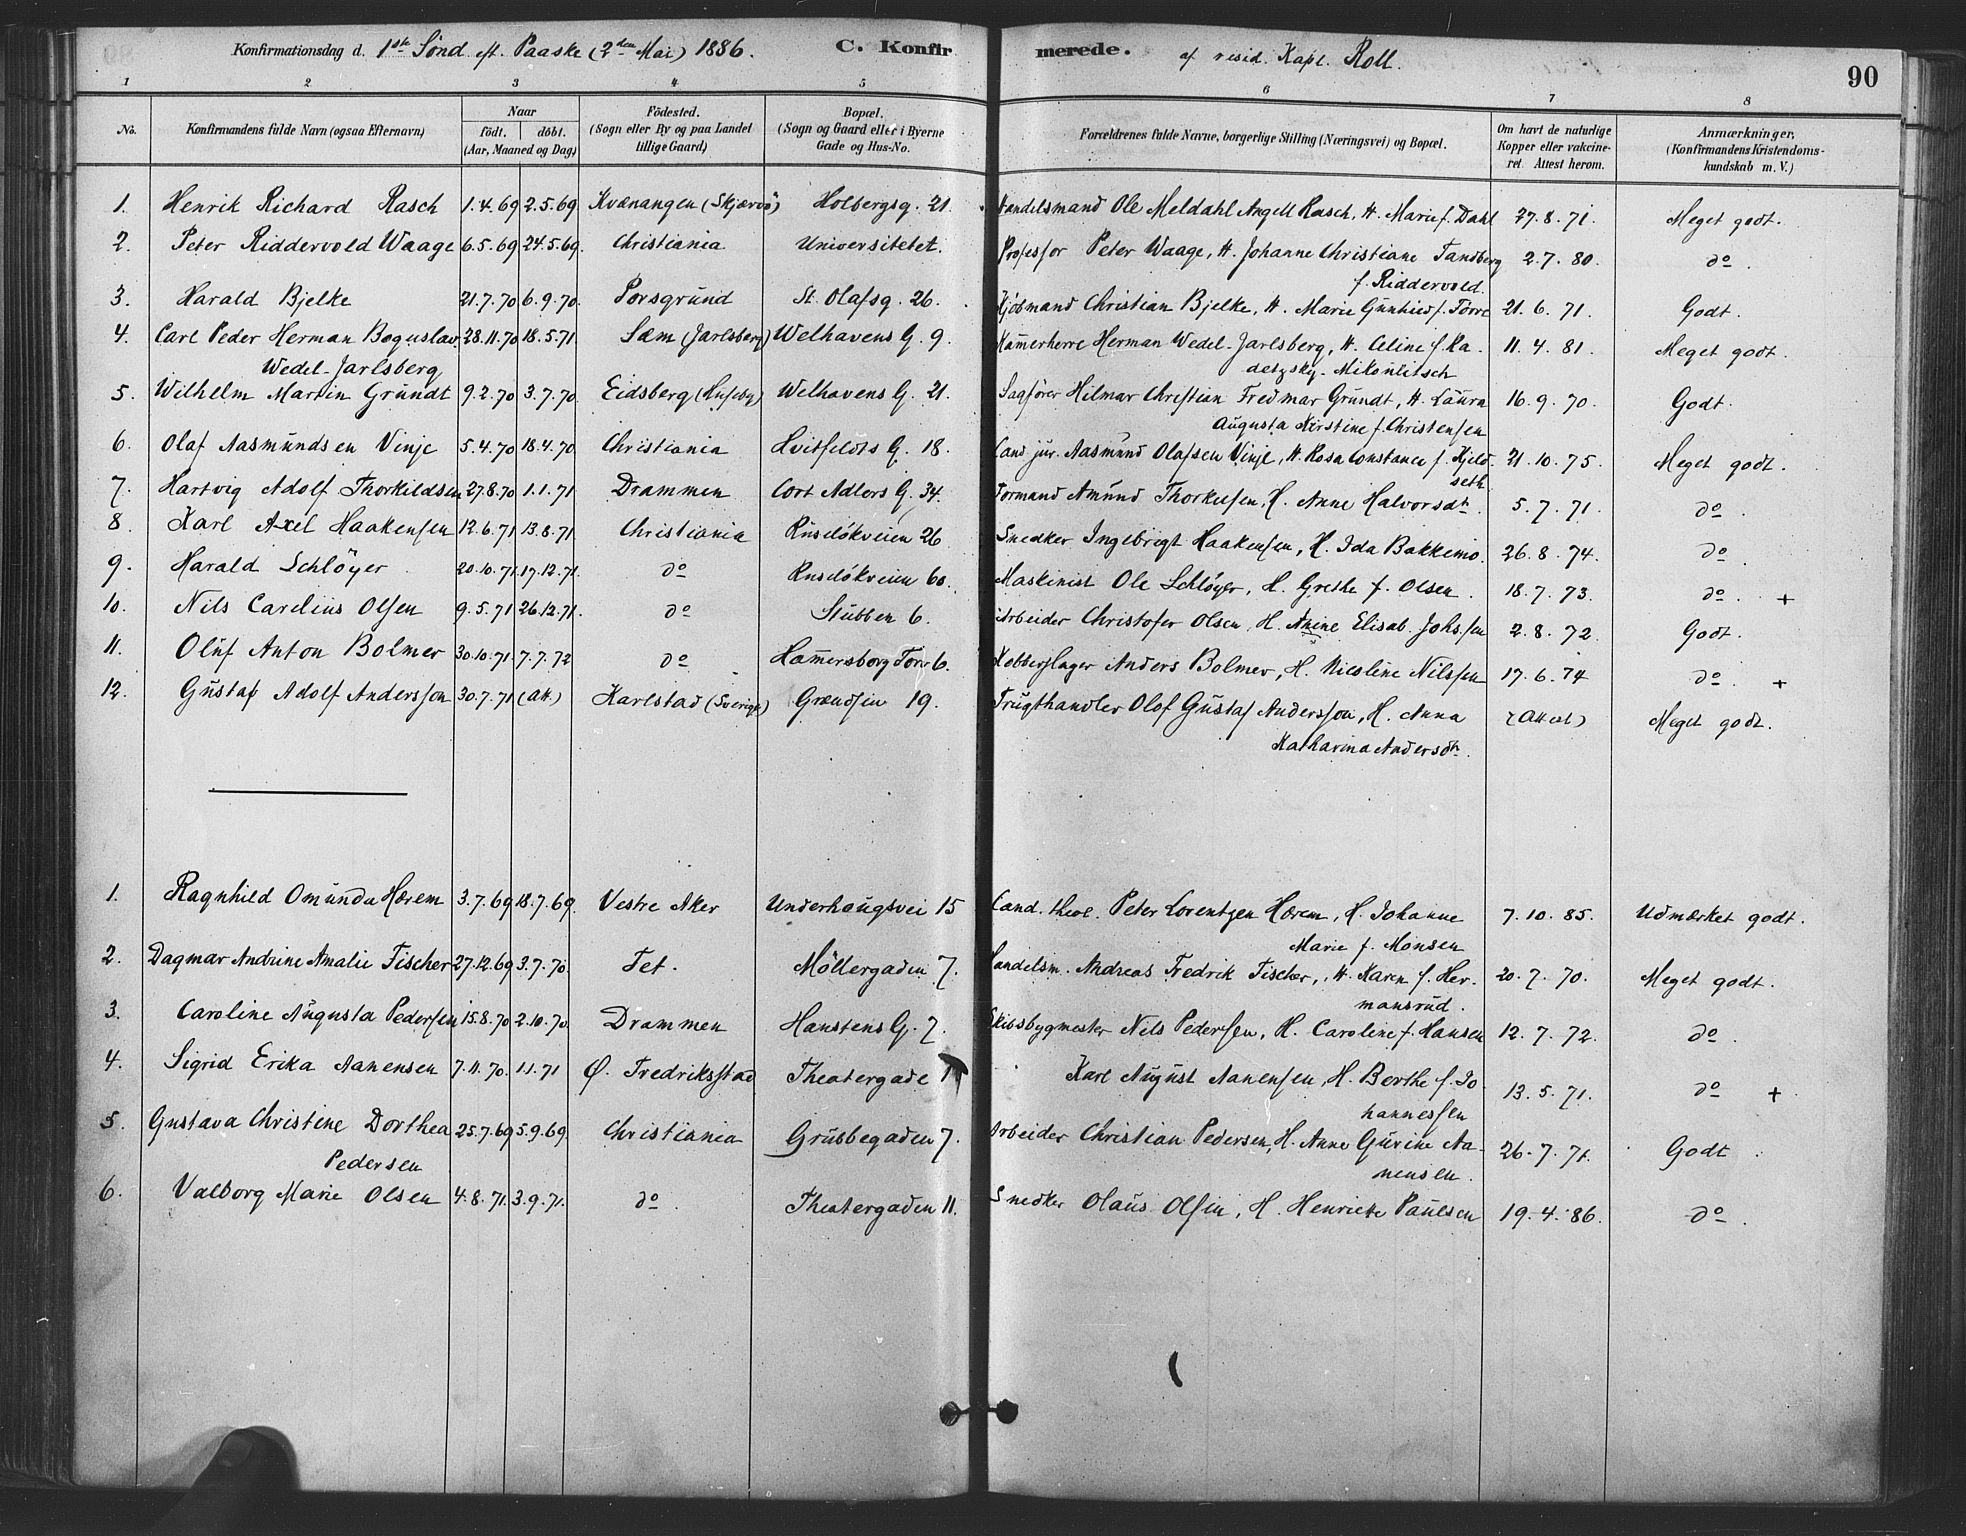 Konfirmationsdag d. 1ste Sönd. eft. Paaske (2den Mai) 1886. C. Konfirmerede. af resid. Kapl. Roll. 90
1 2 3 4 5 6 7 8
No. Konfirmandens fulde Navn (ogsaa Efternavn) Naar födt. döbt. (Aar, Maaned og Dag) Födested. (Sogn eller By og paa Landet tillige Gaard) Bopæl. (Sogn og Gaard eller i Byerne Gade og Hus-No. Forældrenes fulde Navne, borgerlige Stilling (Næringsvei) og Bopæl. Om havt de naturlige Kopper eller vakcineret. Attest herom. Anmærkninger. (Konfirmandens Kristendomskundskab m. V.)
1. Henrik Richard Rasch 1.4.69 2.5.69 Kvænangen (Skjærvö) Holbergsg. 21. Handelsmand Ole Meldahl Angell Rasch, H. Marie f. Dahl 27.8.71. Meget godt.
2. Peter Riddervold Waage 6.5.69 24.5.69. Christiania Universitetet. Professor Peter Waage, H. Johanne Christiane Tandberg 2.7.80. do.
f. Riddervold.
3. Harald Bjelke 21.7.70 6.9.70. Porsgrund St. Olafsg. 26. Kjöbmand Christian Bjelke, H. Marie Gunhild f. Torre 21.6.71. Godt.
4. Carl Peder Herman Boguslav 28.11.70 18.5.71. Sæm (Jarlsberg) Welhavens G. 9. Kammerherre Herman Wedel-Jarlsberg, H. Celine f. Ra- 11.4.81. Meget godt.
Wedel-Jarlsberg detzsky-Mikoulitsch
5. Wilhelm Martin Grundt 9.2.70 3.7.70. Eidsberg Welhavens G. 21. Sagförer Hilmar Christian Fredmar Grundt, H. Laura 16.9.70. Godt.
Augusta Kirstine f. Christensen
6. Olaf Aasmundsen Vinje 5.4.70 18.4.70. Christiania Hvitfeldts G. 18. Cand jur. Aasmund Olafsen Vinje, H. Rosa Constance f. Kjeld- 21.10.75. Meget godt.
seth
7. Hartvig Adolf Thorkildsen 27.8.70 1.1.71 Drammen Cort Adlers G. 34. Formand Amund Thorkelsen, H. Anne Halvorsdtr. 5.7.71. do.
8. Karl Axel Haakensen 12.6.71 13.8.71 Christiania Ruselökveien 26 Snedker Ingebrigt Haakensen, H. Ida Bakkemo. 26.8.74. do.
9. Harald Schlöyer 20.10.71. 17.12.71. do Ruselökveien 60. Maskinist Ole Schlöyer, H. Grethe f. Olsen. 18.7.73. do. +
10. Nils Carelius Olsen 9.5.71 26.12.71. do Stubben 6. Arbeider Christofer Olsen, H. Anine Elisab. Johs.sen 2.8.72. Godt.
11. Oluf Anton Bolmer 30.10.71. 7.7.72 do Hammersborg Torv 6. Kobberslager Anders Bolmer, H. Nicoline Nilssen 17.6.74 do. +
12. Gustaf Adolf Andersson 30.7.71 (Att.) Karlstad (Sverige) Grændsen 19. Frugthandler Olof Gustaf Andersson, H. Anna (Attest) Meget godt.
Katharina Andersdtr.
1. Ragnhild Omunda Hærem 3.7.69 18.7.69. Vestre Aker Underhaugsvei 15 Cand. theol. Peter Lorentzen Hærem, H. Johanne 7.10.85. Udmærket godt.
Marie f. Monsen
2. Dagmar Andrine Amalie Fischer 27.12.69 3.7.70. Fet. Möllergaden 7. Handelsm. Andreas Fredrik Fischer, H. Karen f. Her- 20.7.70. Meget godt.
mansrud.
3. Caroline Augusta Pedersen 15.8.70 2.10.70. Drammen Hanstens G. 7. Skibsbygmester Nils Pedersen, H. Caroline f. Hansen 12.7.72. do.
4. Sigrid Erika Aanensen 7.11.70. 1.1.71 Ø. Fredriksstad Theatergade Karl August Aanensen, H. Berthe f. Jo- 13.5.71. do +
hannessen
5. Gustava Christine Dorthea 25.7.69 5.9.69. Christiania Grubbegaden 7. Arbeider Christian Pedersen, H. Anne Gurine Aa- 26.7.71. Godt.
Pedersen nensen.
6. Valborg Marie Olsen 4.8.71. 3.9.71. do. Theatergaden 11. Snedker Olaus Olsen, H. Henriette Paulsen 19.4.86. do.